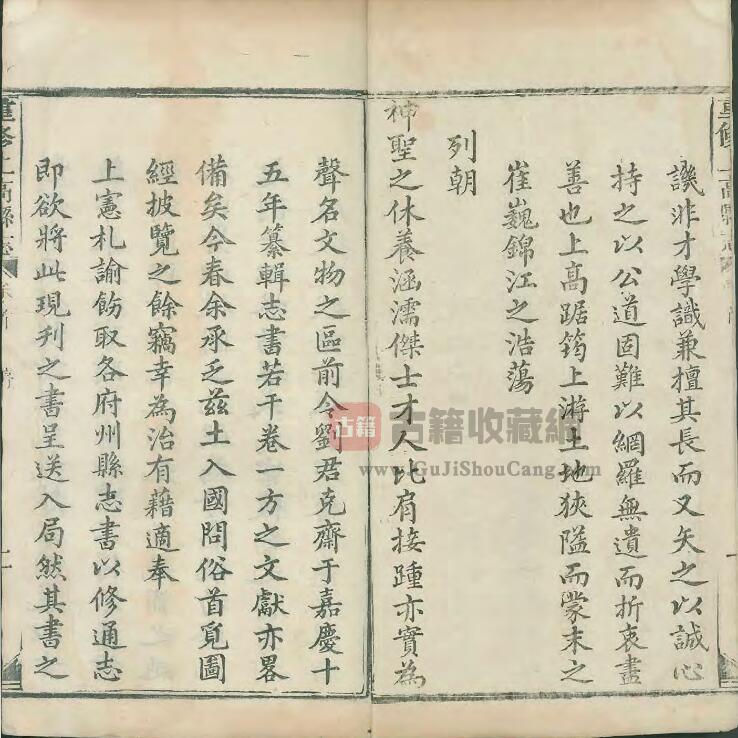 譏非才學識兼擅其長而又矢之以誠心
持之以公道固難以網羅無遺而折衷盡
善也上高踞筠上游土地狹隘而蒙末之
崔巍錦江之浩蕩
列朝
神聖之休養涵濡傑士才人比肩接踵亦實為
聲名文物之區前令劉君克齋于嘉慶十
五年纂輯志書若干卷一方之文獻亦畧
備矣今春余承乏茲土入國問俗首覓圖
經披覽之餘竊幸為治有藉適奉
上憲札諭飭取各府州縣志書以修通志
即欲將此現刋之書呈送入局然其書之
重修上高縣志
古籍
古籍收藏網
www.GuJiShouCang.com